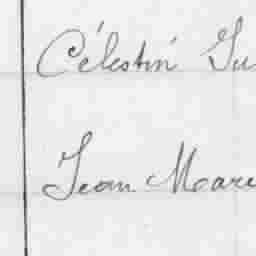 Célestin Ju
Jean Mare